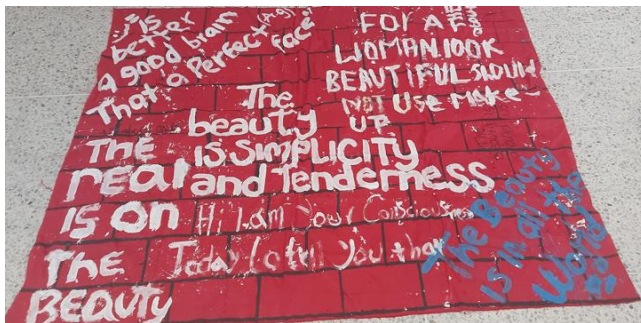 is
better
a good brain
That a Perfect
face
FOR A
WOMAN LOOK
BEAUTIFUL SHOULD
NOT USE MAKE
UP
The
beauty
is simplicity
and Tenderness
THE
real
is on
THE
BEAUTY
Hi I am Your Conscious
Today I a tell You that
The Beauty
is in all the
World